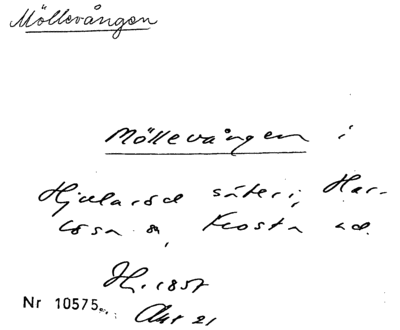 Möllevången
Möllevången i
Hjularöd säteri, Har-
lösa sn, Frosta hd.
H. 1857
Nr 10575
Akt 21